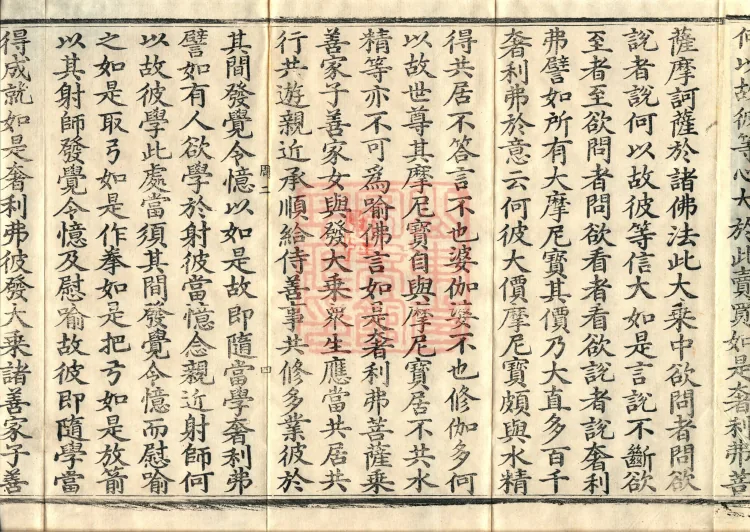 何以故彼等心大於此賣寬如是奢利弗菩
薩摩訶薩於諸佛法此大乘中欲問者問欲
說者說何以故彼等信大如是言說不斷欲
至者至欲問者問欲看者看欲說者說奢利
弗譬如所有大摩尼寶其價乃大直多百千
奢利弗於意云何彼大價摩尼寶頗與水精
得共居不答言不也婆伽婆不也修伽多何
以故世尊其摩尼寶自與摩尼寶居不共水
精等亦不可為喻佛言如是奢利弗菩薩乘
善家子善家女與發大乘眾生應當共居共
行共遊親近承順給侍善事共修多業彼於
周二 四
其間發覺令憶以如是故即隨當學奢利弗
譬如有人欲學於射彼當憶念親近射師何
以故彼學此處當須其間發覺令憶而慰喻
之如是取弓如是作拳如是把弓如是放箭
以其射師發覺令憶及慰喻故彼即隨學當
得成就如是奢利弗彼發大乘諸善家子善